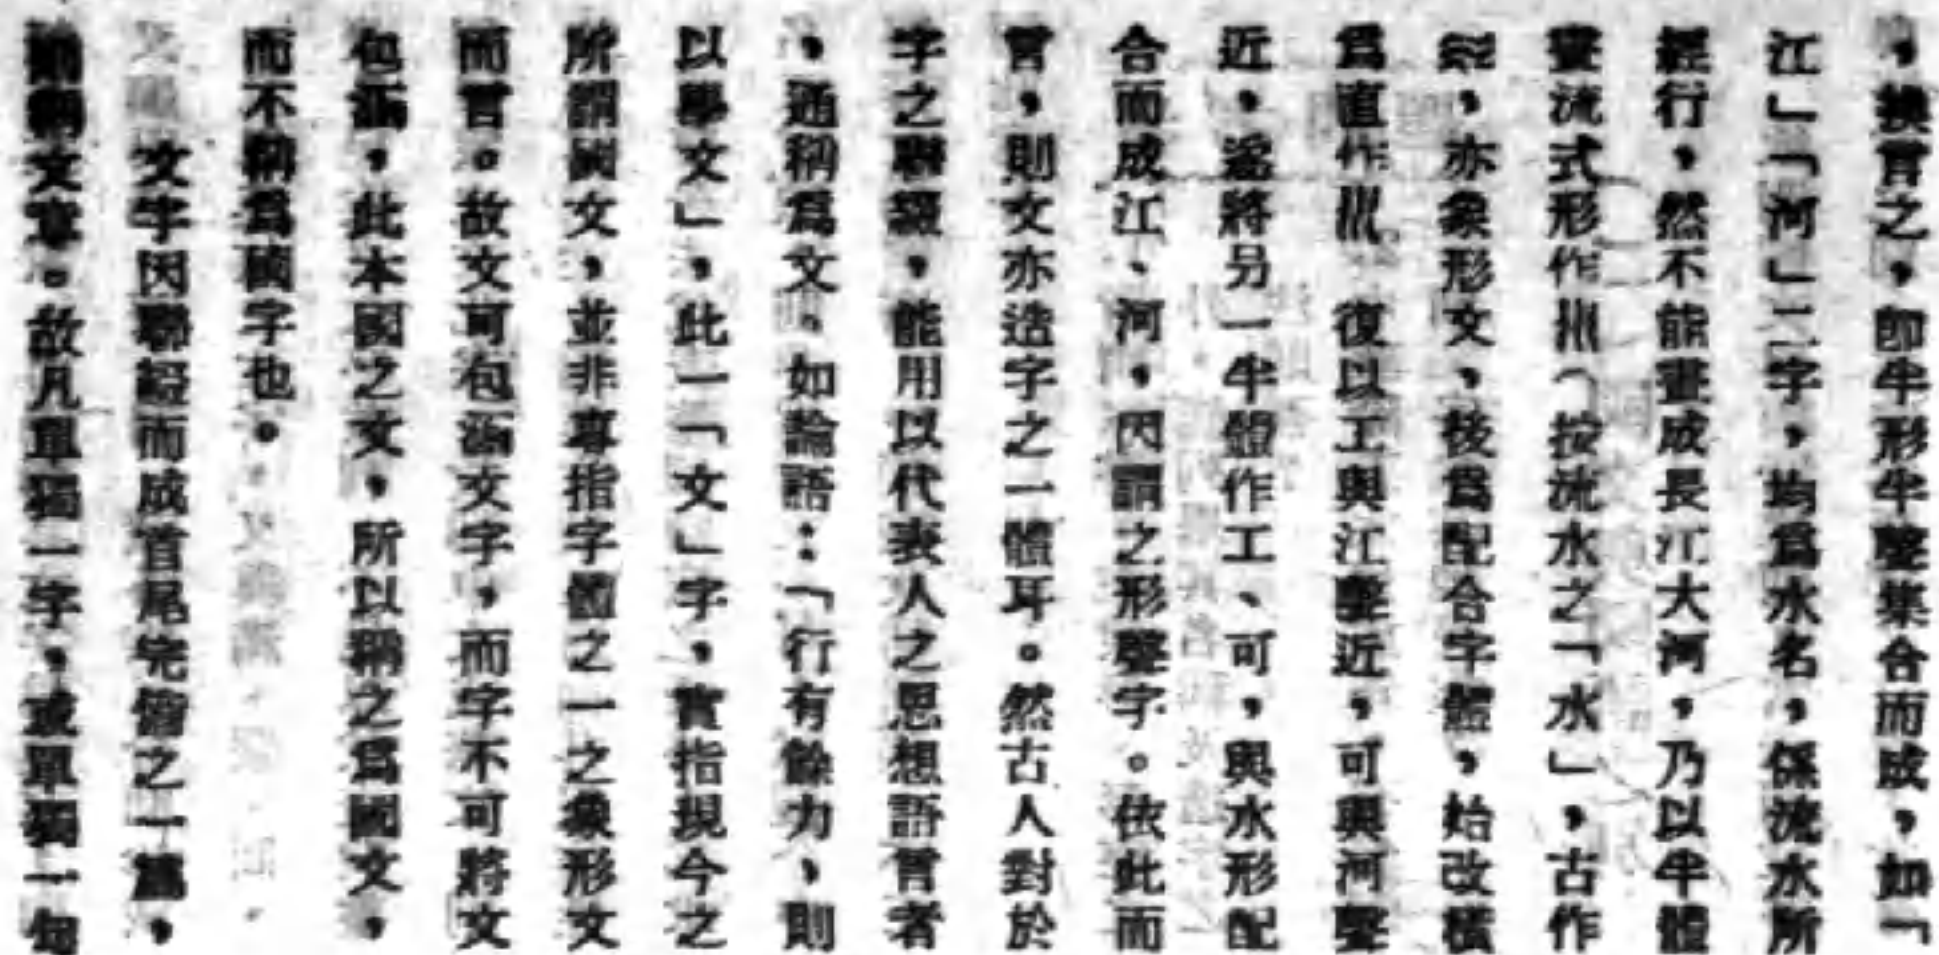 ，換言之，卽半形半聲集合而成，如「
江」「河」二字，均爲水名，係流水所
經行，然不能畫成長江大河，乃以半體
畫流式形作巛（按流水之「水」，古作
≈，亦象形文、後爲配合字體，始改橫
爲直作巛 復以工與江聲近，可與河聲
近，遂將另一半體作工、可，與水形配
合而成江、河，因謂之形聲字。依此而
言，則文亦造字之一體耳。然古人對於
字之聯綴，能用以代表人之思想語言者
，通稱爲文。如論語：「行有餘力、則
以學文」，此一「文」字，實指現今之
所謂國文，並非專指字體之一之象形文
而言。故文可包涵文字，而字不可將文
包涵，此本國之文，所以稱之爲國文，
而不稱爲國字也。
文字因聯綴而成首尾完備之一篇，
則稱文章。故凡單獨一字，或單獨一句